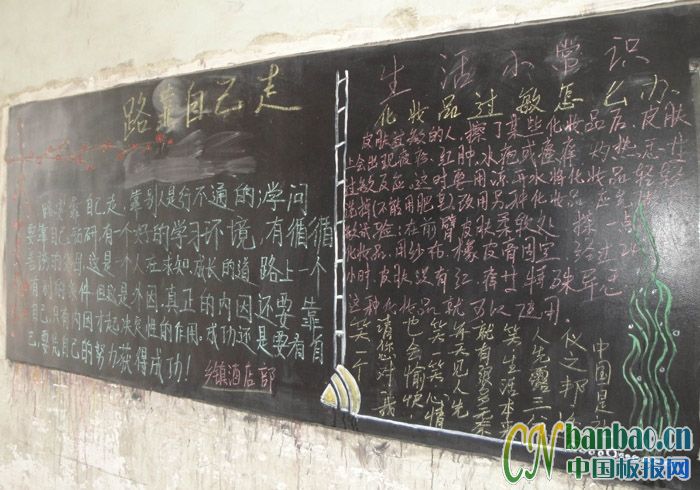 路靠自己走
路要靠自己走,靠别人是行不通的,学问
要靠自己钻研有一个好的学习环境 有循循
善诱的 这是一个人在求知、成长的道 路上一个
有利的条件 但这是外因,真正的内因还要 靠
自己,只有内因才起决定性的作用。成功还是要看自
己,要凭自己的努力获得成功!
乡镇酒店部
生活小常识
化妆品过敏怎么办
皮肤过敏的人,擦了某些化妆品后,皮肤
上会出现疹、红肿、水疱或瘙痒、灼热
过敏反应。这时要用凉开水将化妆品轻轻
洗掉(不能用肥皂)改用另一种化妆品
敏试验:在前臂皮肤柔软处 擦一点
化妆品,用纱布、橡皮膏固定
小时,皮肤没有红、痒 特殊异
这种化妆品就可以使用。
中国是
仪之邦
人先露三分
笑,生涯本
就有
每天见人先
笑一笑心情
也会愉快
请您对我
笑一个
CNbanbao.cn
中国板报网